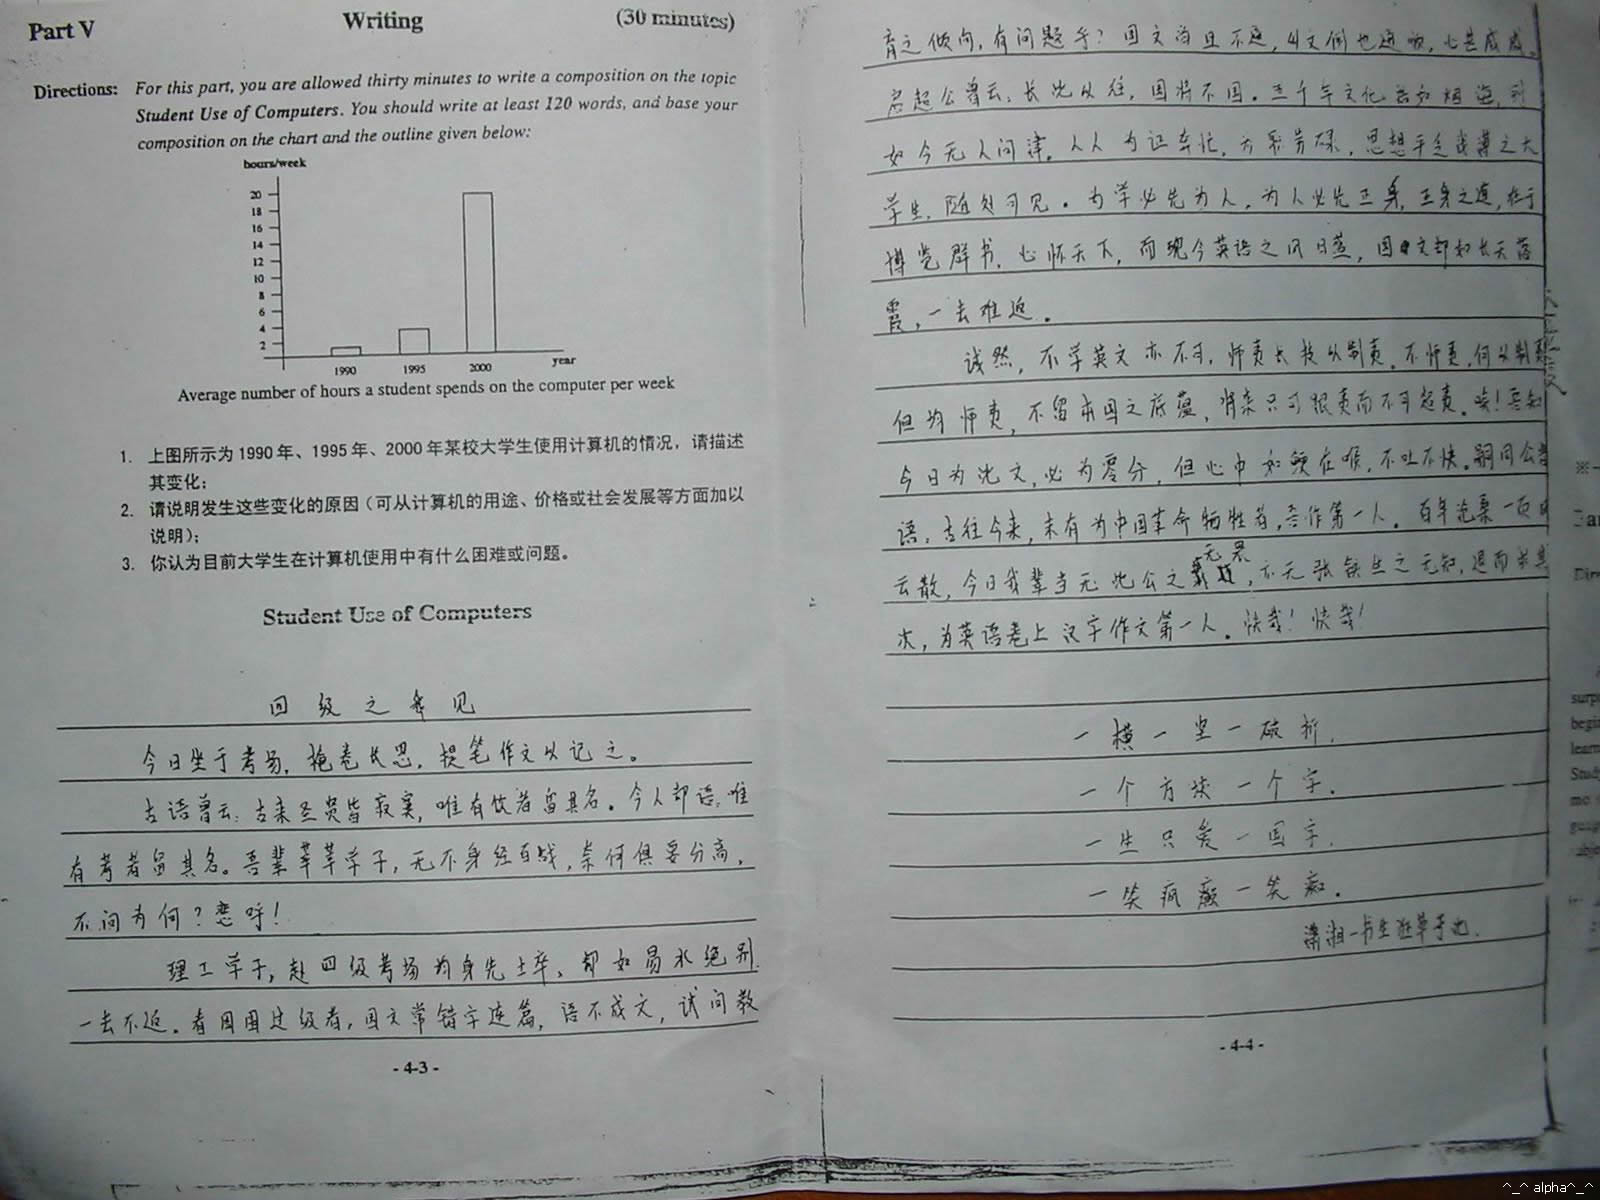 Part V Writing (30 minutes)
Directions: For this part, you are allowed thirty minutes to write a composition on the topic
Student Use of Computers. You should write at least 120 words, and base your
composition on the chart and the outline given below:
hours/week
20
18
16
14
12
10
8
6
4
2
1990 1995 2000 year
Average number of hours a student spends on the computer per week
1. 上图所示为1990年、1995年、2000年某校大学生使用计算机的情况，请描述
其变化；
2. 请说明发生这些变化的原因（可从计算机的用途、价格或社会发展等方面加以
说明）；
3. 你认为目前大学生在计算机使用中有什么困难或问题。
Student Use of Computers
四级之我见
今日坐于考场，掩卷长思，提笔作文以记之。
古语曾云：古来圣贤皆寂寞，唯有饮者留其名。今人却语：唯
有考者留其名。吾辈莘莘学子，无不身经百战，奈何俱要分高，
不问为何？悲呼！
理工学子，赴四级考场为身先士卒、却如易水绝别
一去不返。看因因过级者，国文常错字连篇，语不成文，试问教
- 4-3 -
育之倾向，有问题乎？国文尚且不通，
启超公曾云：长此以往，国将不国。五千年文化
如今无人问津。人人为证奔忙，劳碌，思想平乏浅薄之大
学生，随处可见。为学必先为人，为人必先正身，正身之道，在于
博览群书，心怀天下，而现今英语之风日盛，国文却如长天落
霞，一去难返。
诚然，不学英文亦不可，师夷长技以制夷。不师夷，何以制夷
但均师夷，不留本国之底蕴，将来只可跟夷而不可超夷。唉！吾知
今日为此文，必为零分，但心中如鲠在喉，不吐不快。嗣同公曾
语：古往今来，未有为中国革命牺牲者，吾作第一人。百年沧桑一
云散，今日我辈当无此公之无畏，亦无张铁生之无知，退而求其
次，为英语卷上汉字作文第一人。快哉！快哉！
一横一竖一破折，
一个方块一个字。
一生只爱一国字，
一笑疯癫一笑痴。
潇湘一书生
- 4-4 -
^_^ alpha^_^